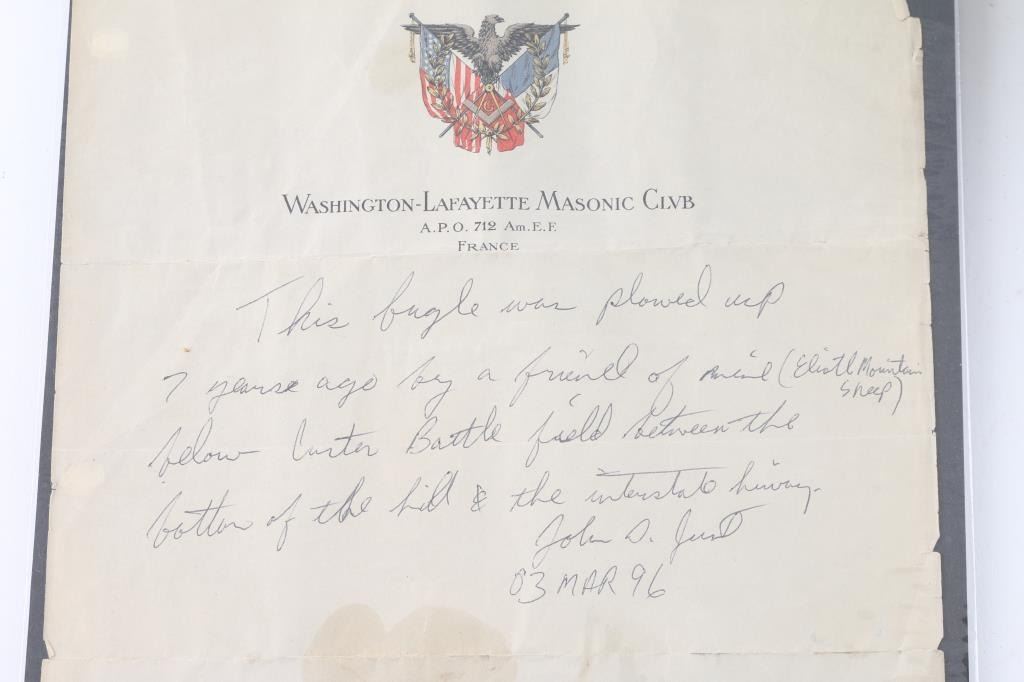 WASHINGTON-LAFAYETTE MASONIC CLVB
A.P.O. 712 AM.E.F.
FRANCE
This bugle was plowed up
7 yearse ago by a friend of mine (Mountain
Sheep)
below Custer Battle field between the
bottom of the hill & the interstate hiway.
John D. Just
03 MAR 96